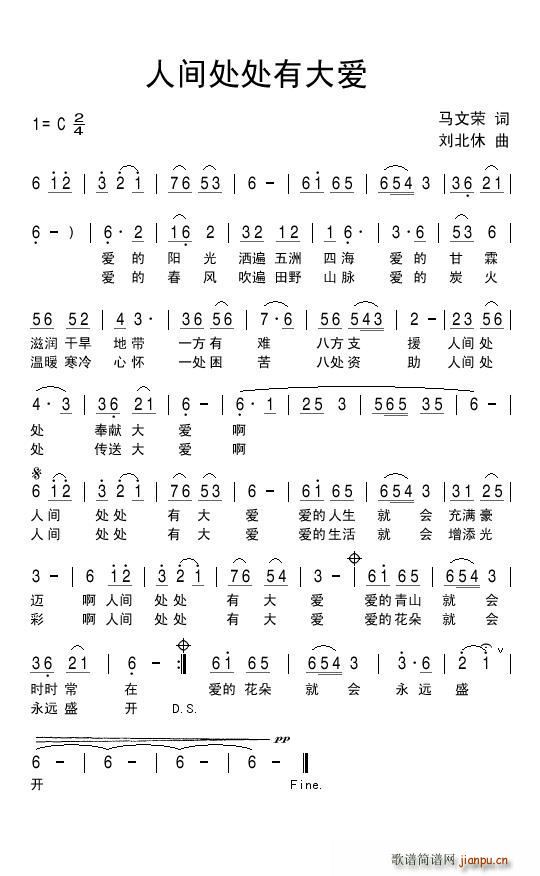 人间处处有大爱
1= C 2/4
马文荣 词
刘北休 曲
6 1 2 | 3 2 1 | 7 6 5 3 | 6 - | 6 1 6 5 | 6 5 4 3 | 3 6 2 1 |
6 - ) | 6· 2 | 1 6 | 3 2 1 2 | 1 6 | 3· 6 | 5 3 6 |
爱 的 阳 光 洒遍 五洲 四 海 爱 的 甘 霖
爱 的 春 风 吹遍 田野 山 脉 爱 的 炭 火
5 6 5 2 | 4 3· | 3 6 5 6 | 7· 6 | 5 6 5 4 3 | 2 - | 2 3 5 6 |
滋润 干旱 地 带 一方 有 难 八方 支 援 人间 处
温暖 寒冷 心 怀 一处 困 苦 八处 资 助 人间 处
4· 3 | 3 6 2 1 | 6 - | 6· 1 | 2 5 3 | 5 6 5 3 5 | 6 - |
处 奉献 大 爱 啊
处 传送 大 爱 啊
6 1 2 | 3 2 1 | 7 6 5 3 | 6 - | 6 1 6 5 | 6 5 4 3 | 3 1 2 5 |
人 间 处 处 有 大 爱 爱的 人生 就 会 充满 豪
人 间 处 处 有 大 爱 爱的 生活 就 会 增添 光
3 - | 6 1 2 | 3 2 1 | 7 6 5 4 | 3 - | 6 1 6 5 | 6 5 4 3 |
迈 啊 人间 处 处 有 大 爱 爱的 青山 就 会
彩 啊 人间 处 处 有 大 爱 爱的 花朵 就 会
3 6 2 1 | 6 - :| 6 1 6 5 | 6 5 4 3 | 3· 6 | 2 1 v |
时时 常 在 爱的 花朵 就 会 永 远 盛
永远 盛 开 D.S.
pp
6 - | 6 - | 6 - | 6 - ||
开 Fine.
歌谱简谱网
jianpu.cn